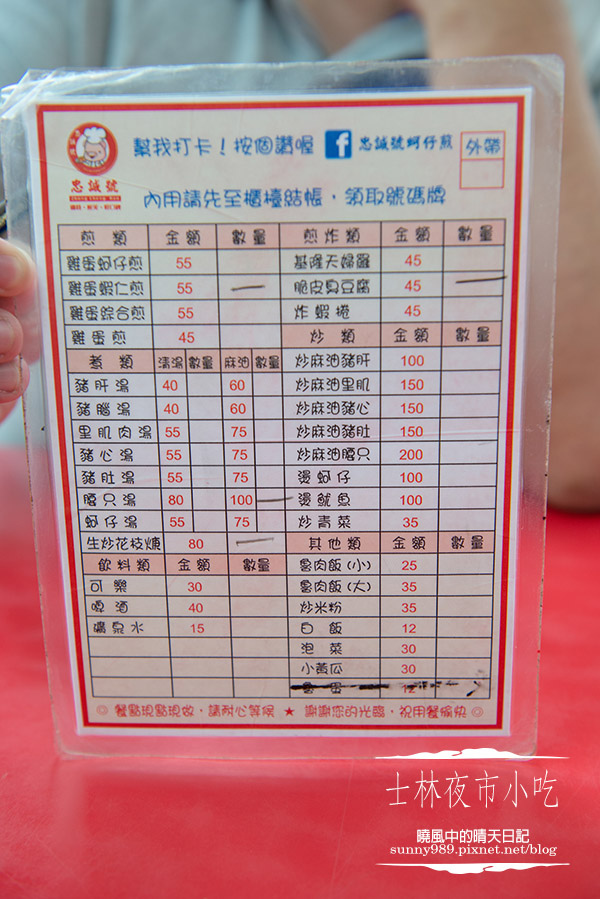 幫我打卡！按個讚喔 f 忠誠號蚵仔煎 外帶
忠誠號
內用請先至櫃檯結帳，領取號碼牌
煎類 金額 數量 煎炸類 金額 數量
雞蛋蚵仔煎 55 基隆天婦羅 45
雞蛋蝦仁煎 55 脆皮臭豆腐 45
雞蛋綜合煎 55 炸蝦捲 45
雞蛋煎 45 炒類 金額 數量
煮類 清湯 數量 麻油 數量 炒麻油豬肝 100
豬肝湯 40 60 炒麻油里肌 150
豬腦湯 40 60 炒麻油豬心 150
里肌肉湯 55 75 炒麻油豬肚 150
豬心湯 55 75 炒麻油腰只 200
豬肚湯 55 75 燙蚵仔 100
腰只湯 80 100 燙魷魚 100
蚵仔湯 55 75 炒青菜 35
生炒花枝焿 80 其他類 金額 數量
飲料類 金額 數量 魯肉飯(小) 25
可樂 30 魯肉飯(大) 35
啤酒 40 炒米粉 35
礦泉水 15 白飯 12
泡菜 30
小黃瓜 30
◎ 餐點現點現做，請耐心等候 ★ 謝謝您的光臨，祝用餐愉快 ◎
士林夜市小吃
曉風中的晴天日記
sunny989.pixnet.net/blog